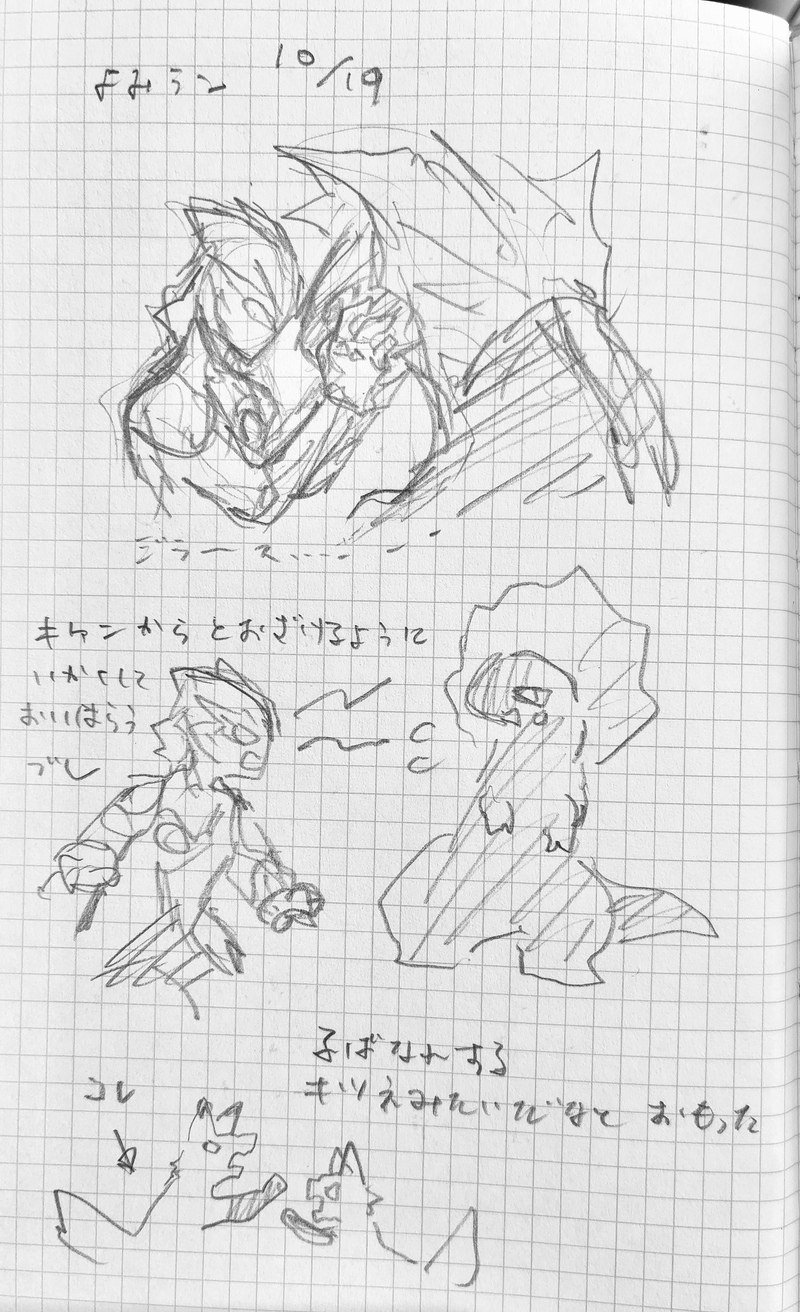 よみうン 10/19
ジラース....--
キャンからとおざけるように
いかくして
おいはらう
ブレ
子ばなれする
キツえみたいだなと おもった
コレ